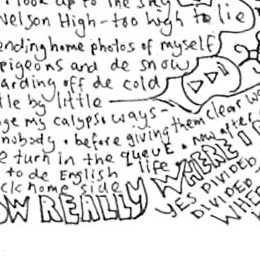 look up to the sky
Nelson High - too high to lie
ending home photos of myself
pigeons and de snow
arding off de cold
tle by little
ge my calypso ways -
nobody . before giving them clear w
e turn in the queue . now after
to de English life
ck home side
OW REALLY
WHERE I
YES DIVIDED
DIVIDED
WHE